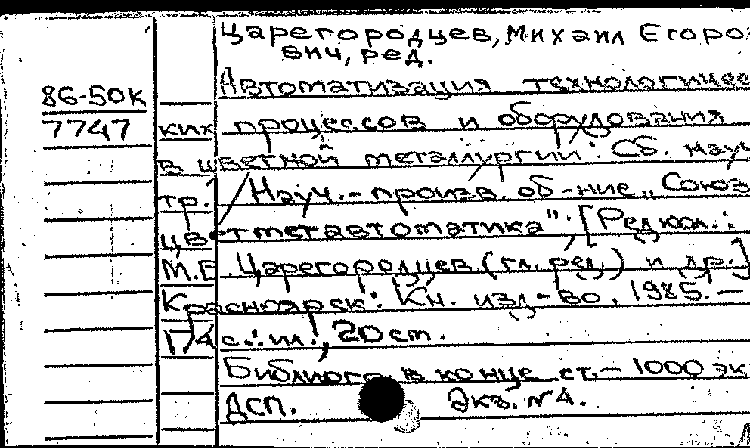 Царегородцев, Михаил Егоро-
вич, ред.
86-50К
Автоматизация технологичес
7747
ких процессов и оборудования
в цветной металлургии: Сб. науч
тр. / Науч.-произв. об-ние „Союз
цветметавтоматика"; [Редкол.:
М.Е. Царегородцев (гл. ред.) и др.]
Красноярск: Кн. изд-во, 1985.—
с.: ил.; 20 cm.
Библиогр. в конце ст.— 1000 эк
ДСП. Экз. №